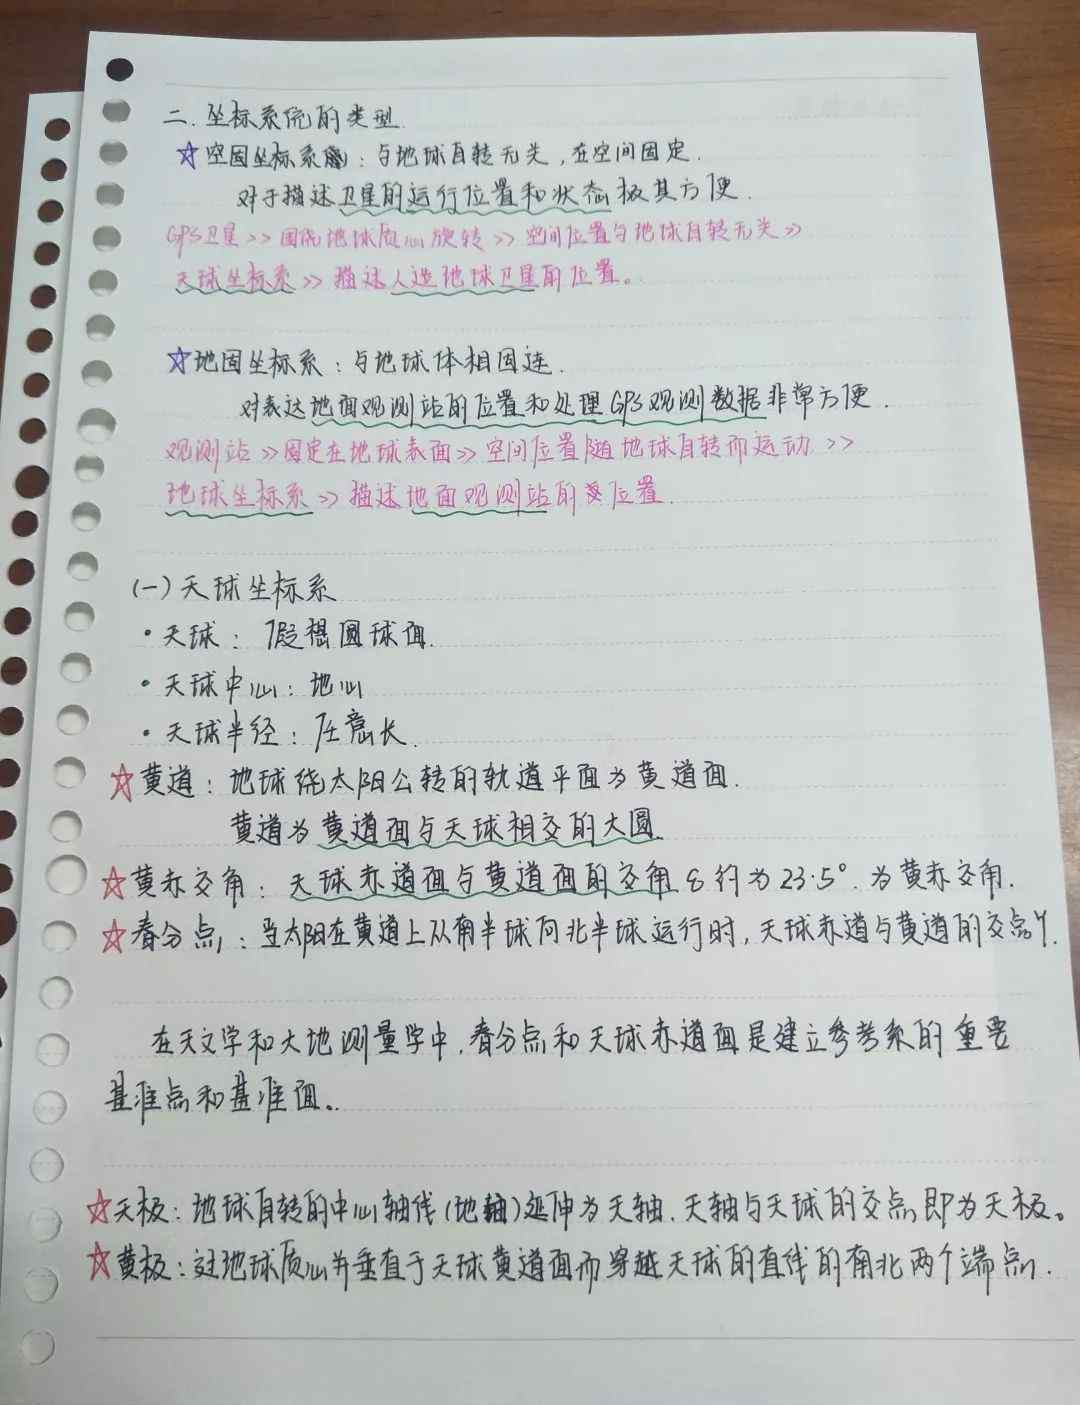 二.坐标系统的类型.
☆空固坐标系：与地球自转无关,在空间固定.
对于描述卫星的运行位置和状态极其方便.
GPS卫星>>围绕地球质心旋转>>空间位置与地球自转无关>>
天球坐标系>>描述人造地球卫星的位置。
☆地固坐标系：与地球体相固连.
对表达地面观测站的位置和处理GPS观测数据非常方便.
观测站>>固定在地球表面>>空间位置随地球自转而运动>>
地球坐标系>>描述地面观测站的位置.
(一)天球坐标系
·天球：假想圆球面.
·天球中心：地心
·天球半径：任意长.
☆黄道：地球绕太阳公转的轨道平面为黄道面.
黄道为黄道面与天球相交的大圆.
☆黄赤交角：天球赤道面与黄道面的交角ε约为23.5°.为黄赤交角.
☆春分点：当太阳在黄道上从南半球向北半球运行时,天球赤道与黄道的交点γ.
在天文学和大地测量学中.春分点和天球赤道面是建立参考系的重要
基准点和基准面。
☆天极：地球自转的中心轴线(地轴)延伸为天轴.天轴与天球的交点即为天极。
☆黄极：过地球质心并垂直于天球黄道面而穿越天球的直线的南北两个端点.